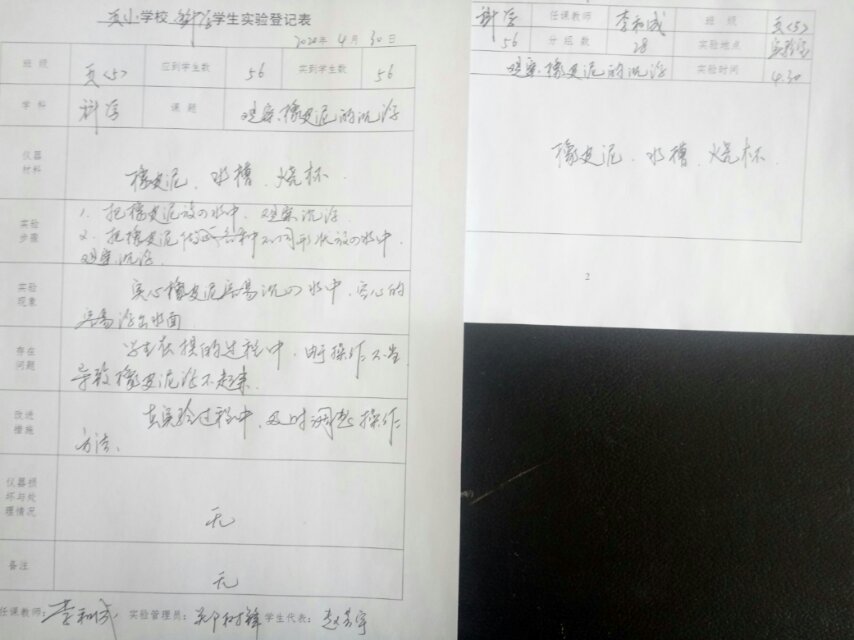 小学校 科学学生实验登记表
2020年4月30日
班级 (5) 应到学生数 56 实到学生数 56
学科 科学 课题 观察橡皮泥的沉浮
仪器材料 橡皮泥、水槽、烧杯
实验步骤 1、把橡皮泥放入水中,观察沉浮.
2、把橡皮泥做成各种不同形状放入水中,
观察沉浮.
实验现象 实心橡皮泥容易沉入水中,空心的
容易浮出水面
存在问题 学生在操的过程中,由于操作不当
导致橡皮泥浮不起来.
改进措施 在实验过程中,及时调整操作
方法、
仪器损坏与处理情况 无
备注 无
任课教师:李和成 实验管理员: 学生代表:
科学 任课教师 李和成 班级 (5)
56 分组数 28 实验地点 实验室
观察橡皮泥的沉浮 实验时间 4.30
橡皮泥、水槽、烧杯.
2